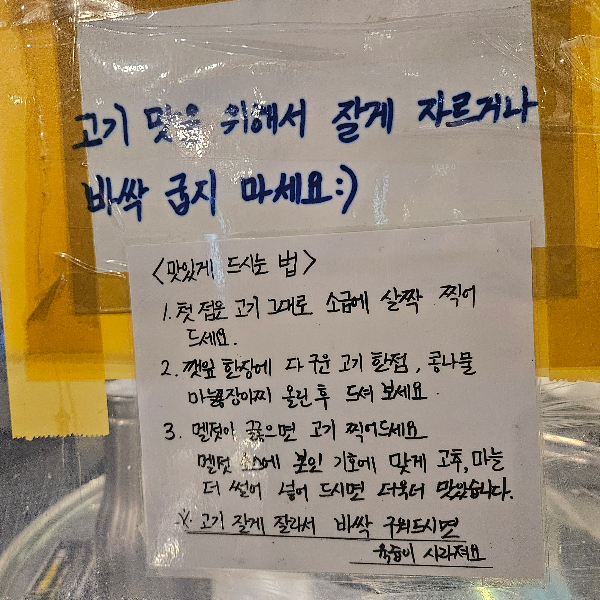 고기 맛을 위해서 잘게 자르거나
바싹 굽지 마세요:)
<맛있게 드시는 법>
1. 첫 점은 고기 그대로 소금에 살짝 찍어
드세요.
2. 깻잎 한장에 다 구운 고기 한점, 콩나물
마늘쫑장아찌 올린 후 드셔 보세요.
3. 멜젓이 끓으면 고기 찍어드세요
멜젓 소스에 본인 기호에 맞게 고추, 마늘
더 썰어 넣어 드시면 더욱더 맛있습니다.
※ 고기 잘게 잘라서 바싹 구워드시면
육즙이 사라져요